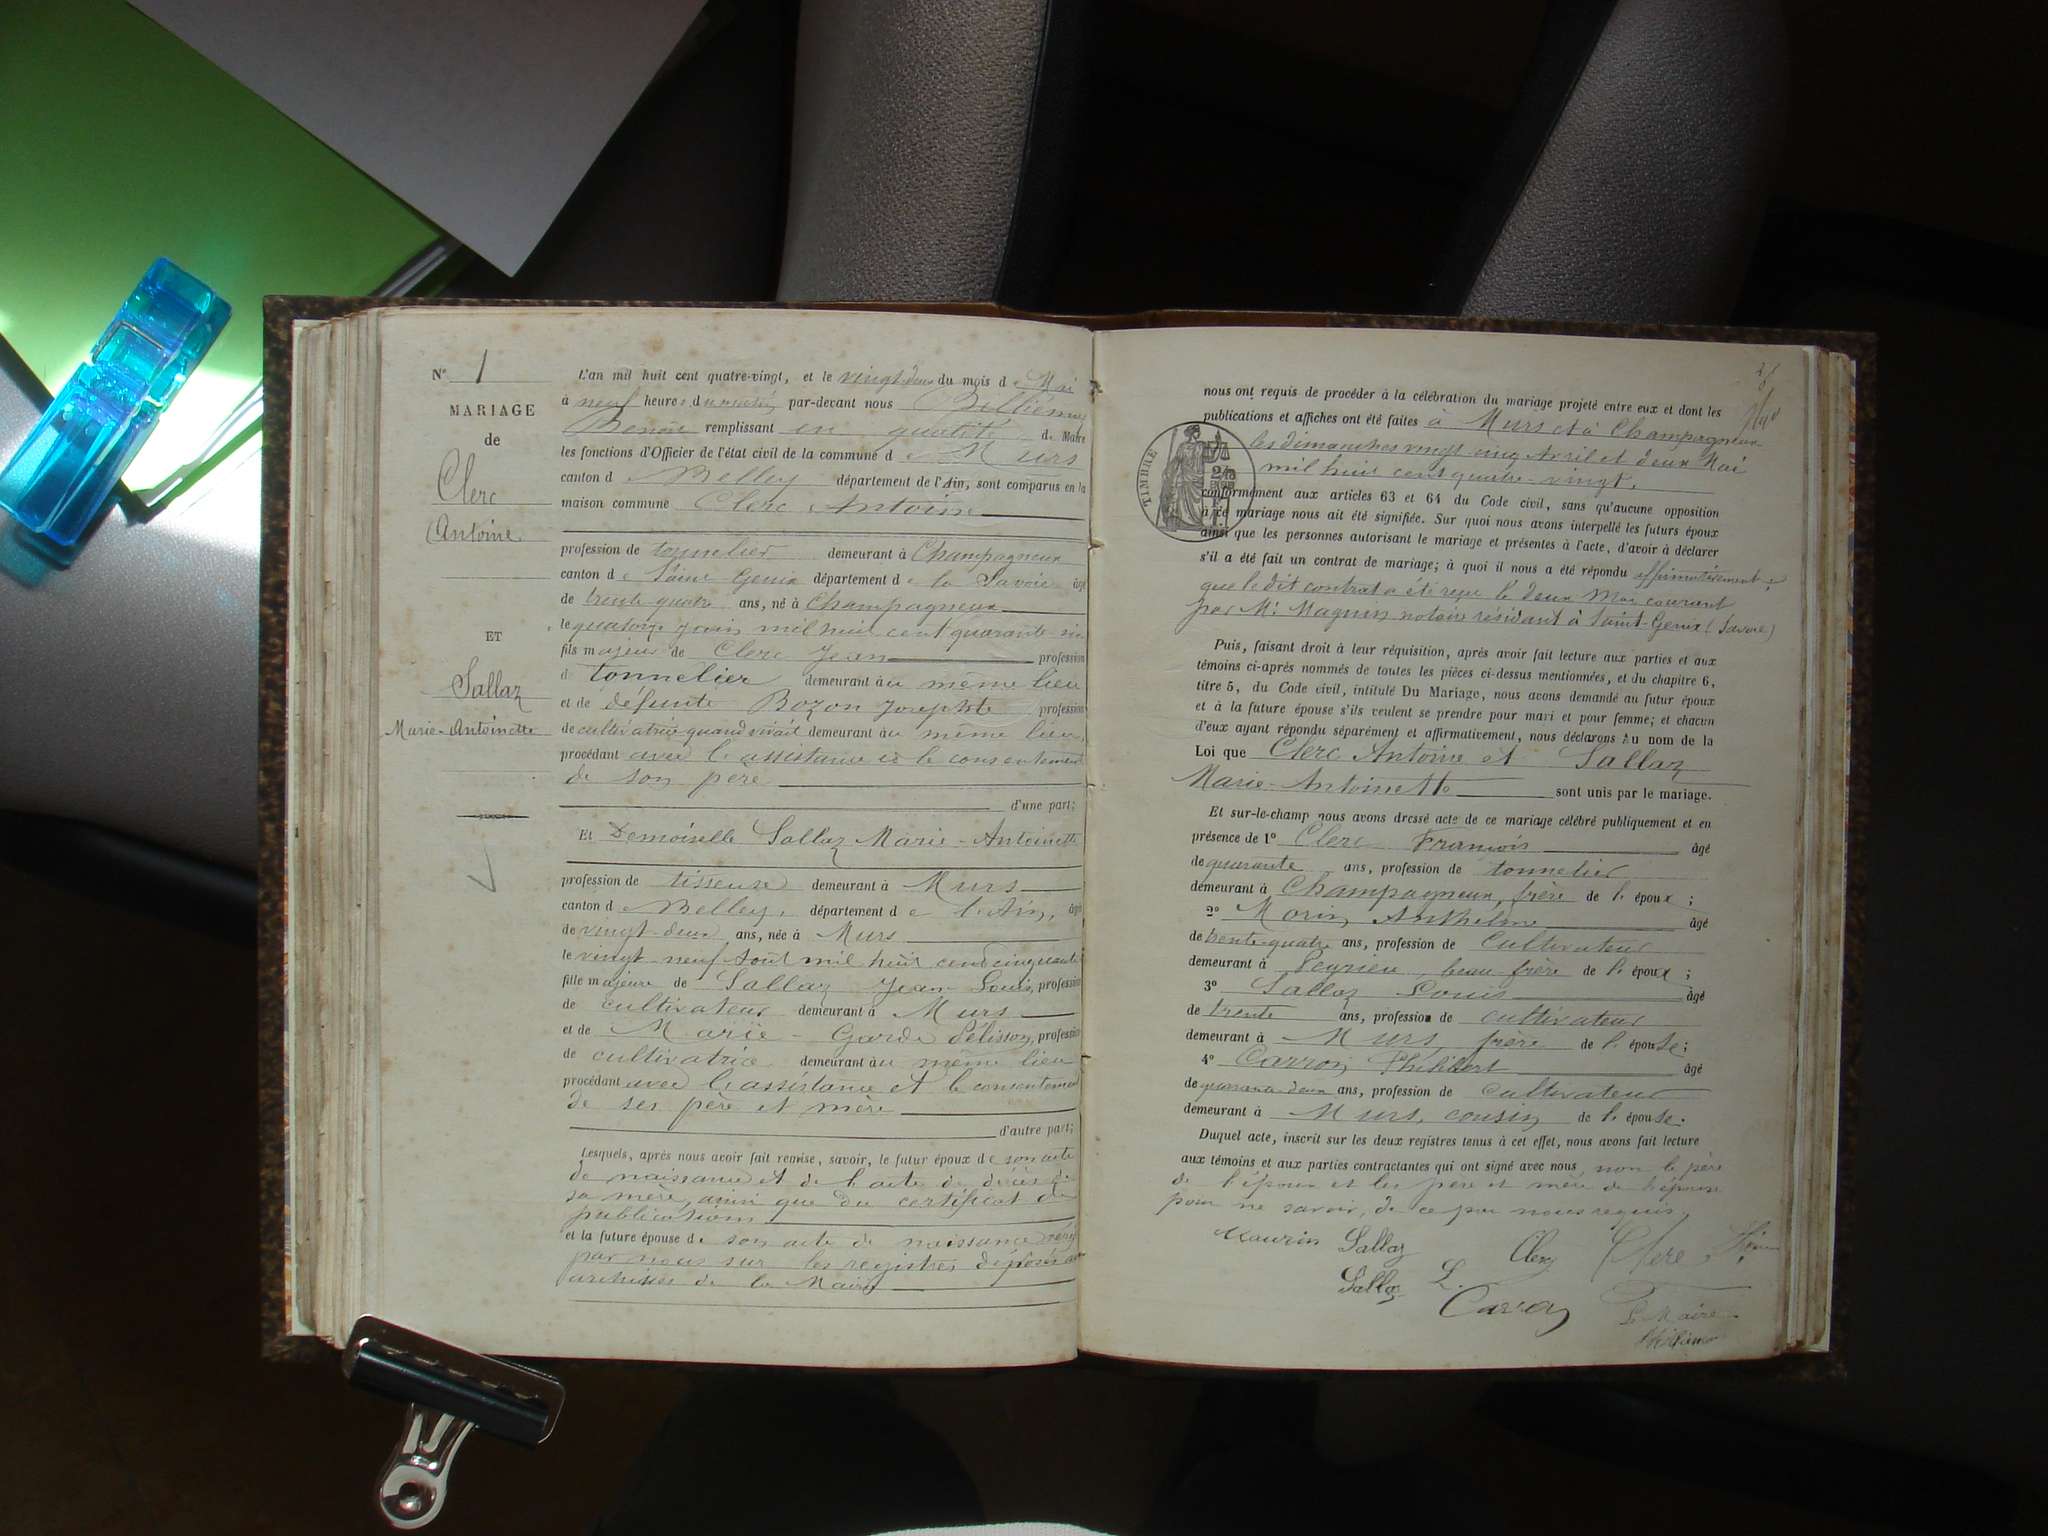 N° 1
MARIAGE
de
Clerc
Antoine
ET
Sallaz
Marie-Antoinette
L'an mil huit cent quatre-vingt, et le vingt-deux du mois de Mai
à neuf heures du matin, par-devant nous Billiémaz
Benoit remplissant en qualité de Maire
les fonctions d'Officier de l'état civil de la commune de Murs
canton de Belley département de l'Ain, sont comparus en la
maison commune Clerc Antoine
profession de tonnelier demeurant à Champagneux
canton de Saint-Genix département de la Savoie âgé
de trente-quatre ans, né à Champagneux
le quatorze juin mil huit cent quarante-
fils majeur de Clerc Jean profession
de tonnelier demeurant au même lieu
et de défunte Bozon Josephte profession
de cultivatrice quand vivait demeurant au même lieu,
procédant avec l'assistance et le consentement
de son père
d'une part;
Et Demoiselle Sallaz Marie-Antoinette
profession de tisseuse demeurant à Murs
canton de Belley, département de l'Ain, âgée
de vingt-deux ans, née à Murs
le vingt-neuf aout mil huit cent cinquante
fille majeure de Sallaz Jean-Louis, profession
de cultivateur demeurant à Murs
et de Marie Garde Pélisson, profession
de cultivatrice demeurant au même lieu
procédant avec l'assistance et le consentement
de ses père et mère
d'autre part;
Lesquels, après nous avoir fait remise, savoir, le futur époux de son acte
de naissance et de l'acte de décès de
sa mère, ainsi que du certificat de
publications
et la future épouse de son acte de naissance
par nous sur les registres déposés aux
archives de la Mairie
nous ont requis de procéder à la célébration du mariage projeté entre eux et dont les
publications et affiches ont été faites à Murs et à Champagneux
les dimanches vingt-cinq Avril et deux Mai
mil huit cent quatre-vingt,
TIMBRE
conformément aux articles 63 et 64 du Code civil, sans qu'aucune opposition
à ce mariage nous ait été signifiée. Sur quoi nous avons interpellé les futurs époux
ainsi que les personnes autorisant le mariage et présentes à l'acte, d'avoir à déclarer
s'il a été fait un contrat de mariage; à quoi il nous a été répondu affirmativement et
que le dit contrat a été reçu le deux Mai courant
par Me Magnin notaire résidant à Saint-Genix (Savoie)
Puis, faisant droit à leur réquisition, après avoir fait lecture aux parties et aux
témoins ci-après nommés de toutes les pièces ci-dessus mentionnées, et du chapitre 6,
titre 5, du Code civil, intitulé Du Mariage, nous avons demandé au futur époux
et à la future épouse s'ils veulent se prendre pour mari et pour femme; et chacun
d'eux ayant répondu séparément et affirmativement, nous déclarons Au nom de la
Loi que Clerc Antoine et Sallaz
Marie-Antoinette sont unis par le mariage.
Et sur-le-champ nous avons dressé acte de ce mariage célébré publiquement et en
présence de 1° Clerc François âgé
de quarante ans, profession de tonnelier
demeurant à Champagneux, frère de l'époux;
2° Morin Anthelme âgé
de trente-quatre ans, profession de cultivateur
demeurant à Peyrieu, beau frère de l'époux;
3° Sallaz Louis âgé
de trente ans, profession de cultivateur
demeurant à Murs, frère de l'épouse;
4° Carron Philibert âgé
de quarante-deux ans, profession de cultivateur
demeurant à Murs, cousin de l'épouse.
Duquel acte, inscrit sur les deux registres tenus à cet effet, nous avons fait lecture
aux témoins et aux parties contractantes qui ont signé avec nous, non le père
de l'époux et les père et mère de l'épouse
pour ne savoir, de ce par nous requis.
Sallaz Clerc Clerc
Sallaz L.
Carron
Le Maire